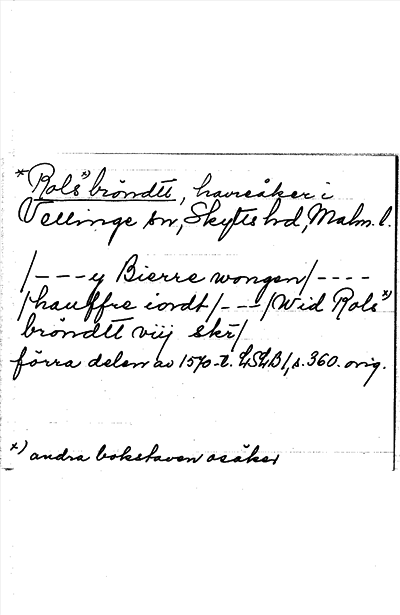 *Rols*) bröndtt, havreåker i
Vellinge sn, Skytts hd, Malm. l.
/---y Bierre wongen/----
/hauffre iordt/---/Wid Rols*)
bröndtt viij skr/
förra delen av 1570-t. LSLB/, s. 360. orig.
*) andra bokstaven osäker